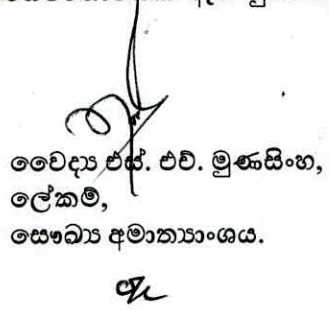 වෛද්‍ය එස්. එච්. මුණසිංහ,
ලේකම්,
සෞඛ්‍ය අමාත්‍යාංශය.